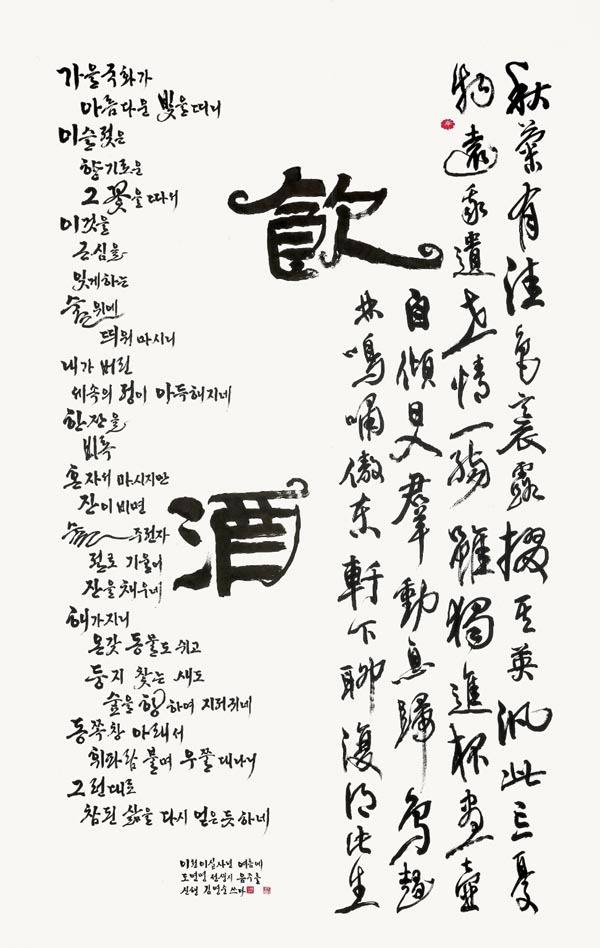 飲酒
秋菊有佳色裛露掇其英汎此忘憂
物遠我遺世情一觴雖獨進杯盡壺
自傾日入羣動息歸鳥趨
林鳴嘯傲東軒下聊復得此生
가을국화가
아름다운 빛을 띠니
이슬젖은
향기로운
그 꽃을 따서
이것을
근심을
잊게하는
술위에
띄워 마시니
내가 버린
세속의 정이 아득해지네
한잔을
비록
혼자서 마시지만
잔이 비면
술주전자
절로 기울어
잔을 채우네
해가지니
온갖 동물도 쉬고
둥지 찾는 새도
숲을 향하며 지저귀네
동쪽창 아래서
휘파람 불며 우쭐대나니
그런대로
참된 삶을 다시 얻은듯 하네
이천이십사년 여름에
도연명 선생시 음주를
쓰다